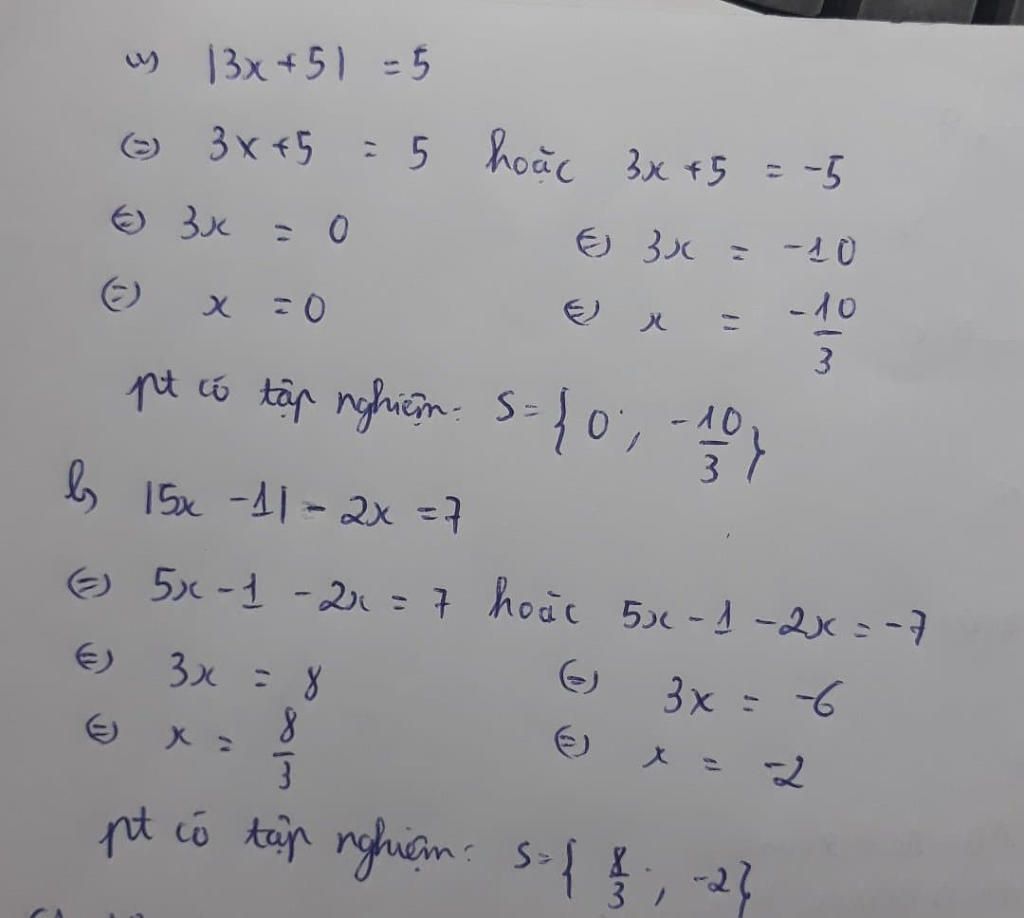 a) |3x+5| = 5
⇔ 3x+5 = 5 hoặc 3x+5 = -5
⇔ 3x = 0 ⇔ 3x = -10
⇔ x = 0 ⇔ x = -10/3
pt có tập nghiệm: S={0; -10/3}
b) |5x -1| - 2x = 7
⇔ 5x-1 -2x = 7 hoặc 5x-1-2x = -7
⇔ 3x = 8 ⇔ 3x = -6
⇔ x = 8/3 ⇔ x = -2
pt có tập nghiệm: S={8/3; -2}